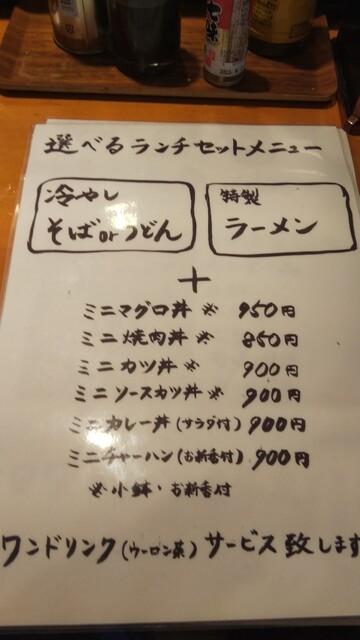 選べるランチセットメニュー
冷やし
そばorうどん
特製
ラーメン
+
ミニマグロ丼 ※ 950円
ミニ焼肉丼 ※ 850円
ミニカツ丼 ※ 900円
ミニソースカツ丼 ※ 900円
ミニカレー丼(サラダ付) 900円
ミニチャーハン(お新香付) 900円
※小鉢・お新香付
ワンドリンク(ウーロン茶)サービス致します